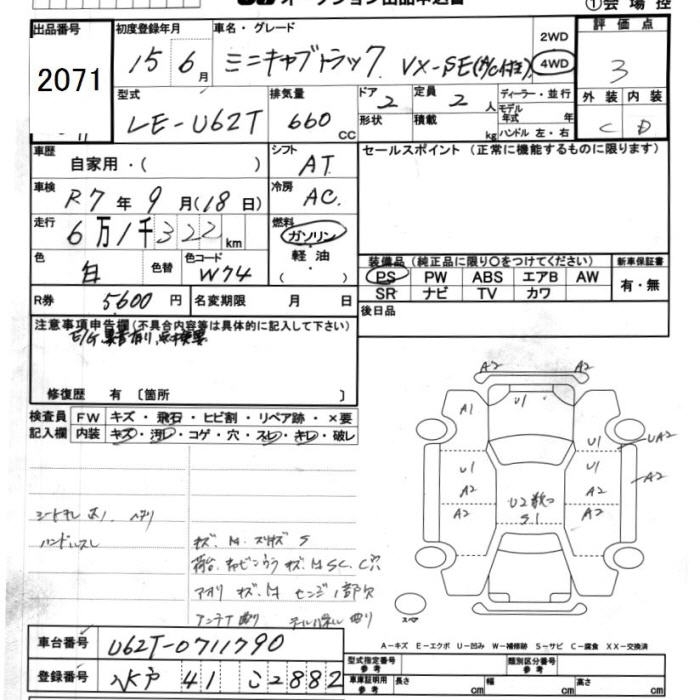 オークション出品申込書 ①会場控
出品番号 初度登録年月 車名・グレード 評価点
2071 15年6月 ミニキャブトラック VX-SE(A/C付き) 2WD 4WD 3
型式 排気量 ドア 定員 ディーラー・並行 外装 内装
LE-U62T 660cc 2 2人 モデル年式 年 C D
形状 積載 kg ハンドル 左・右
車歴 自家用・( ) シフト AT セールスポイント (正常に機能するものに限ります)
車検 R7年9月(18日) 冷房 AC
走行 6万1千322km 燃料 ガソリン
軽油
色 白 色替 色コード W74 ( )
装備品 (純正品に限り○をつけてください) 新車保証書
PS PW ABS エアB AW 有・無
SR ナビ TV カワ
R券 5600円 名変期限 月 日 後日品
注意事項申告欄(不具合内容等は具体的に記入して下さい)
E/G異音有り、要
修復歴 有 〔箇所 〕
検査員 FW キズ・飛石・ヒビ割・リペア跡・×要
記入欄 内装 キズ・汚レ・コゲ・穴・スレ・キレ・破レ
A2 A2
A1 U1 U1 UA2
U1 U1 A2
A2 U2数コ A2
A2 S1 A2
シートキレ 大1 ヘタリ
ハンドルスレ キズ、M スリキズ S
荷台、キャビンウラ キズ、M SC、C穴
アオリ キズ、M ヒンジ1部欠
アンテナ曲り テールパネル曲り
スペア
A-キズ E-エクボ U-凹み W-補修跡 S-サビ C-腐食 XX-交換済
車台番号 U62T-0711790
登録番号 水戸 41 こ2882
型式指定番号 参考 類別区分番号 参考
車庫証明用 参考 長さ cm 幅 cm 高さ cm